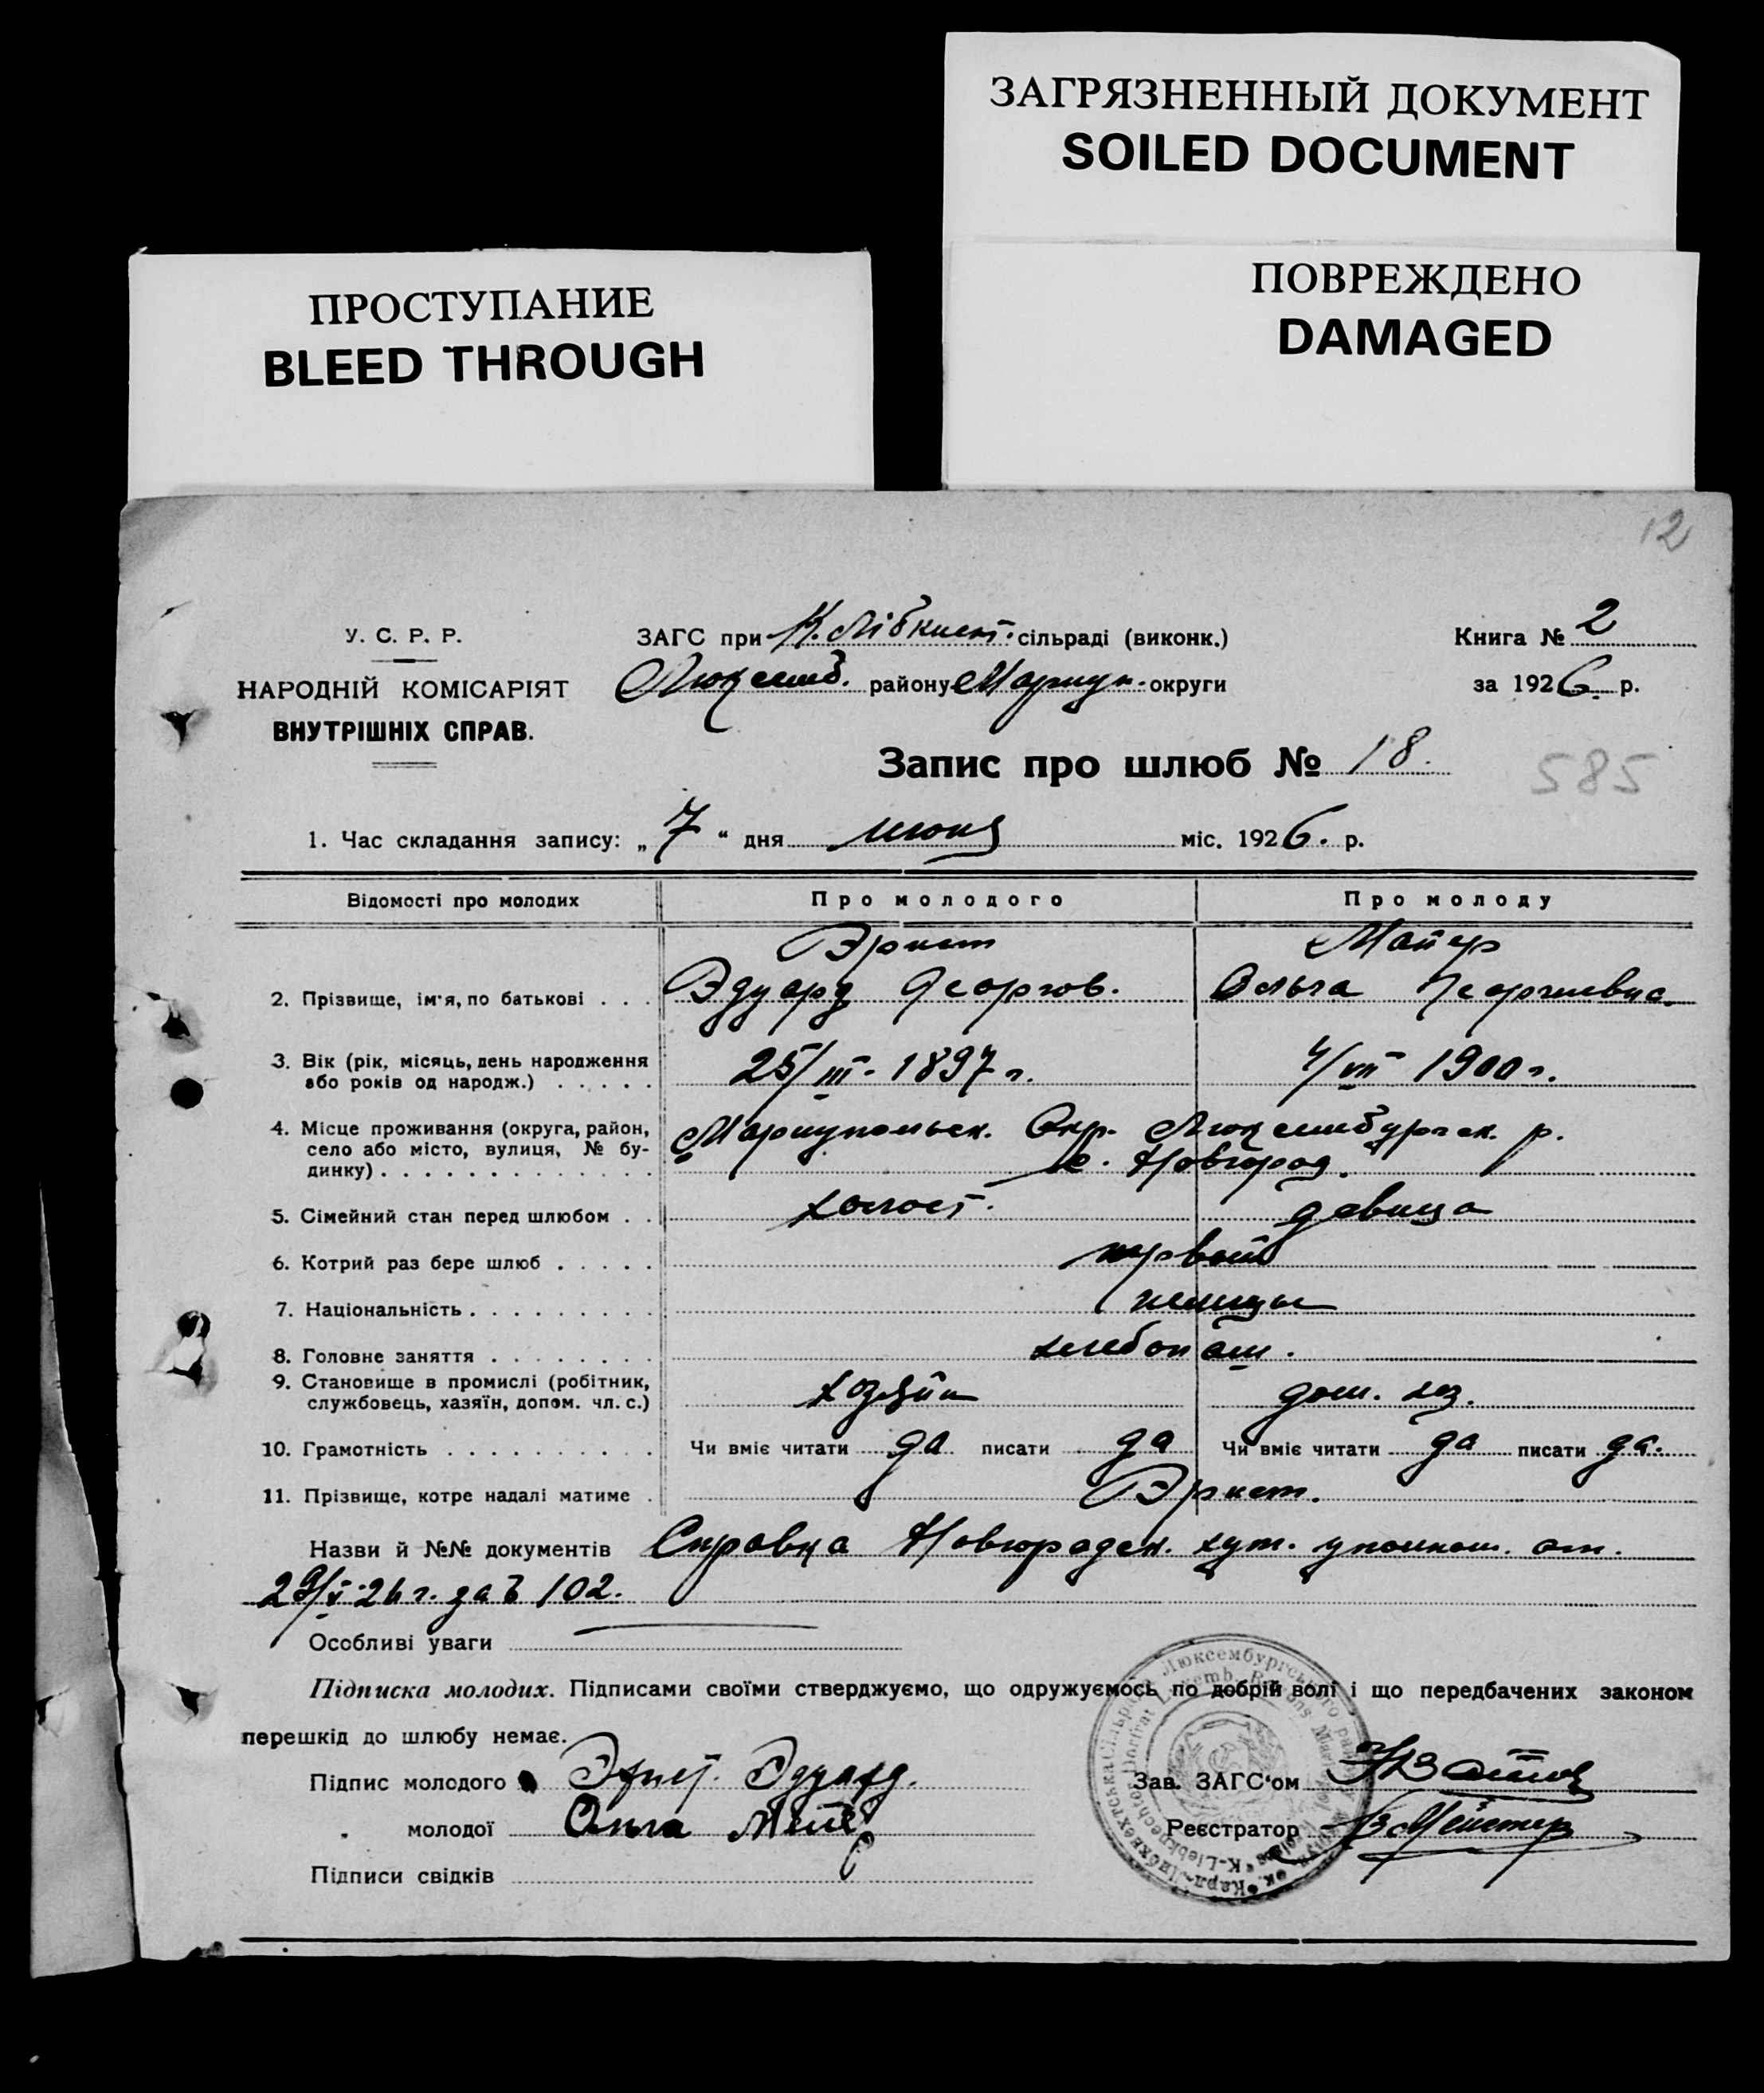 ЗАГРЯЗНЕННЫЙ ДОКУМЕНТ
SOILED DOCUMENT
ПРОСТУПАНИЕ
BLEED THROUGH
ПОВРЕЖДЕНО
DAMAGED
12
У. С. Р. Р.
НАРОДНІЙ КОМІСАРІЯТ
ВНУТРІШНІХ СПРАВ.
ЗАГС при К. Лібкнехт. сільраді (виконк.)
Люксемб. району Мариуп. округи
Книга № 2
за 1926. р.
Запис про шлюб № 18.
585
1. Час складання запису: „ 7 “ дня июня міс. 1926. р.
Відомості про молодих Про молодого Про молоду
Эрнст Майер
2. Прізвище, ім'я, по батькові . . . Эдуард Георгов. Ольга Георгиевна.
3. Вік (рік, місяць, день народження
або років од народж.) . . . . . 25/III. 1897 г. 4/VII 1900 г.
4. Місце проживання (округа, район, Мариупольск. Окр. Люксембургск. р.
село або місто, вулиця, № бу-
динку) . . . . . . . . . . . . . Новгород.
5. Сімейний стан перед шлюбом . . холост. девица
6. Котрий раз бере шлюб . . . . . первый
7. Національність . . . . . . . . . немцы
8. Головне заняття . . . . . . . . хлебопаш.
9. Становище в промислі (робітник,
службовець, хазяїн, допом. чл. с.) хозяин дом. хоз.
10. Грамотність . . . . . . . . . . Чи вміє читати да писати да Чи вміє читати да писати да.
11. Прізвище, котре надалі матиме . Эрнст.
Назви й №№ документів Справка Новгородск. хут. уполном. от.
29/V-26 г. за № 102.
Особливі уваги
Підписка молодих. Підписами своїми стверджуємо, що одружуємось по добрій волі і що передбачених законом
перешкід до шлюбу немає.
Підпис молодого Эрнст. Эдуард.
Зав. ЗАГС'ом
„ молодої Ольга Майер
Реєстратор
Підписи свідків